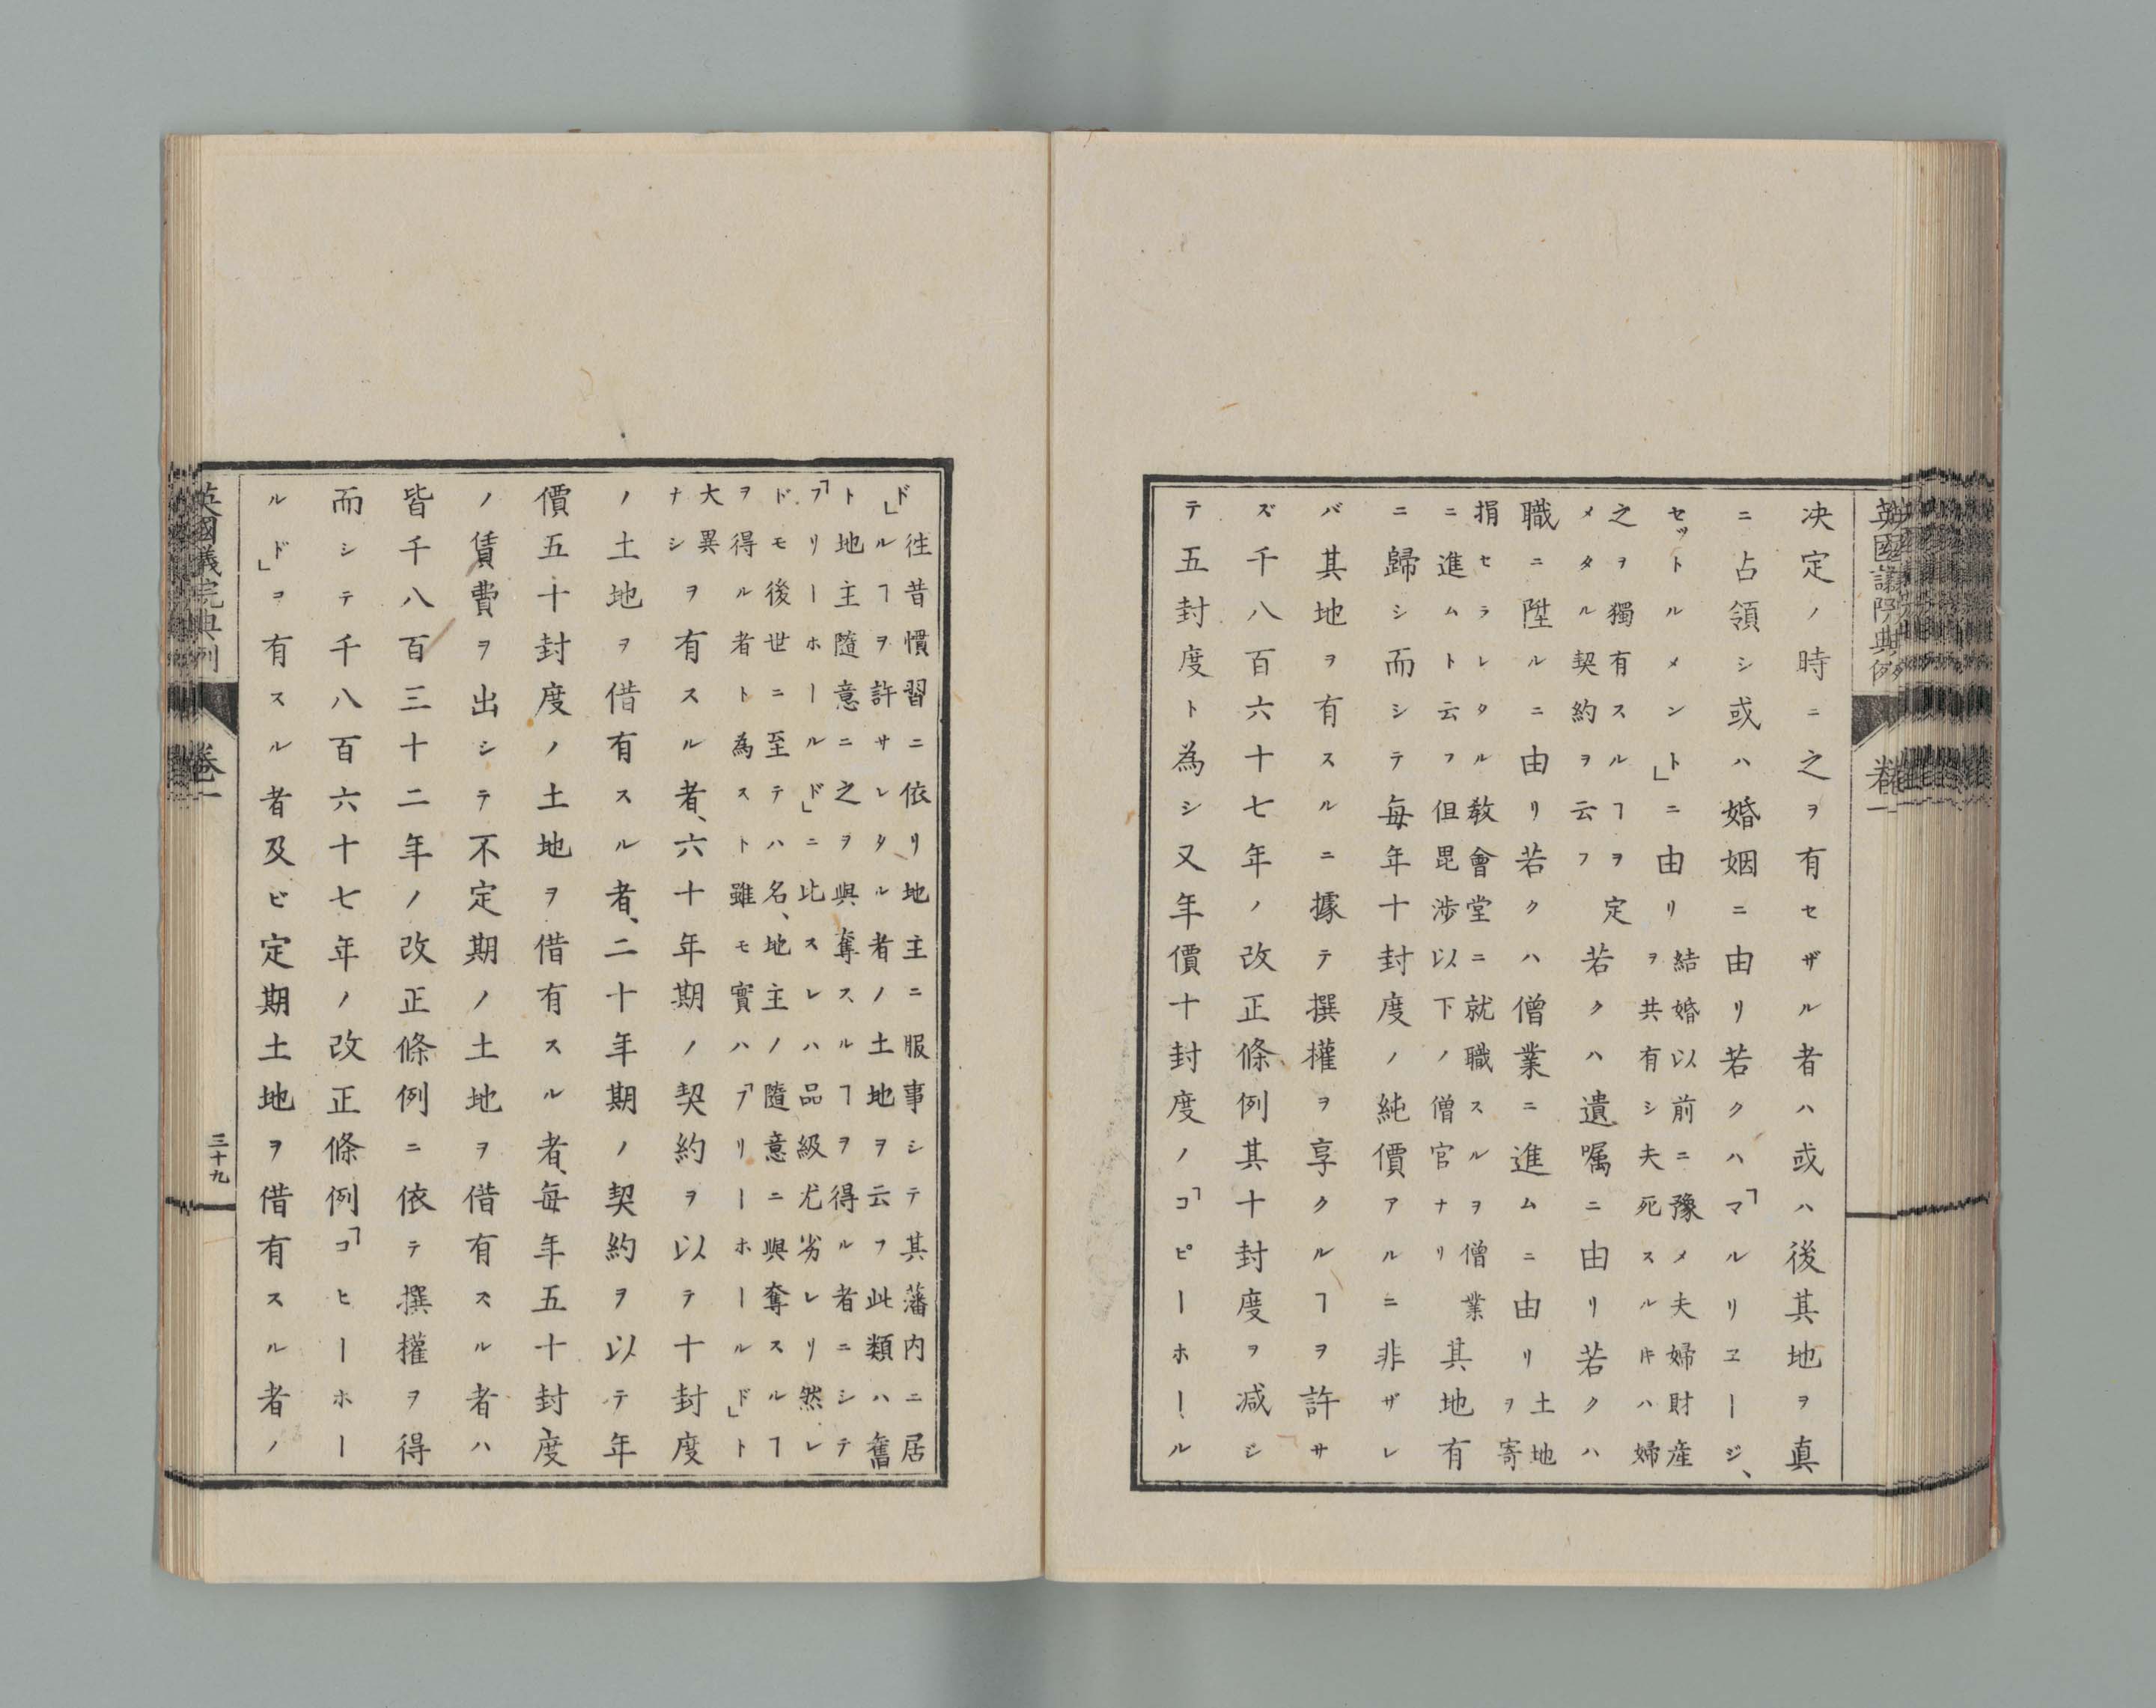 英國議院典例 卷一
决定ノ時ニ之ヲ有セザル者ハ或ハ後其地ヲ真
ニ占領シ或ハ婚姻ニ由リ若クハ「マルリヱージ、
セットルメント」ニ由リ
結婚以前ニ豫メ夫婦財産
ヲ共有シ夫死スル𪜈ハ婦
之ヲ獨有スルヿヲ定
メタル契約ヲ云フ
若クハ遺嘱ニ由リ若クハ
職ニ陞ルニ由リ若クハ僧業ニ進ムニ由リ
土地
ヲ寄
捐セラレタル敎會堂ニ就職スルヲ僧業
ニ進ムト云フ但毘渉以下ノ僧官ナリ
其地有
ニ歸シ而シテ每年十封度ノ純價アルニ非ザレ
バ其地ヲ有スルニ據テ撰權ヲ享クルヿヲ許サ
ズ千八百六十七年ノ改正條例其十封度ヲ减ジ
テ五封度ト為シ又年價十封度ノ「コピーホール
ド」
徃昔慣習ニ依リ地主ニ服事シテ其藩内ニ居
ルヿヲ許サレタル者ノ土地ヲ云フ此類ハ舊
ト地主隨意ニ之ヲ與奪スルヿヲ得ル者ニシテ
「フリーホールド」ニ比スレハ品級尤劣レリ然レ
ドモ後世ニ至テハ名、地主ノ隨意ニ與奪スルヿ
ヲ得ル者ト為スト雖モ實ハ「フリーホールド」ト
大異
ナシ
ヲ有スル者、六十年期ノ契約ヲ以テ十封度
ノ土地ヲ借有スル者、二十年期ノ契約ヲ以テ年
價五十封度ノ土地ヲ借有スル者、每年五十封度
ノ賃費ヲ出シテ不定期ノ土地ヲ借有スル者ハ
皆千八百三十二年ノ改正條例ニ依テ撰權ヲ得
而シテ千八百六十七年ノ改正條例「コヒーホー
ルド」ヲ有スル者及ビ定期土地ヲ借有スル者ノ
英國議院典例 卷一 三十九